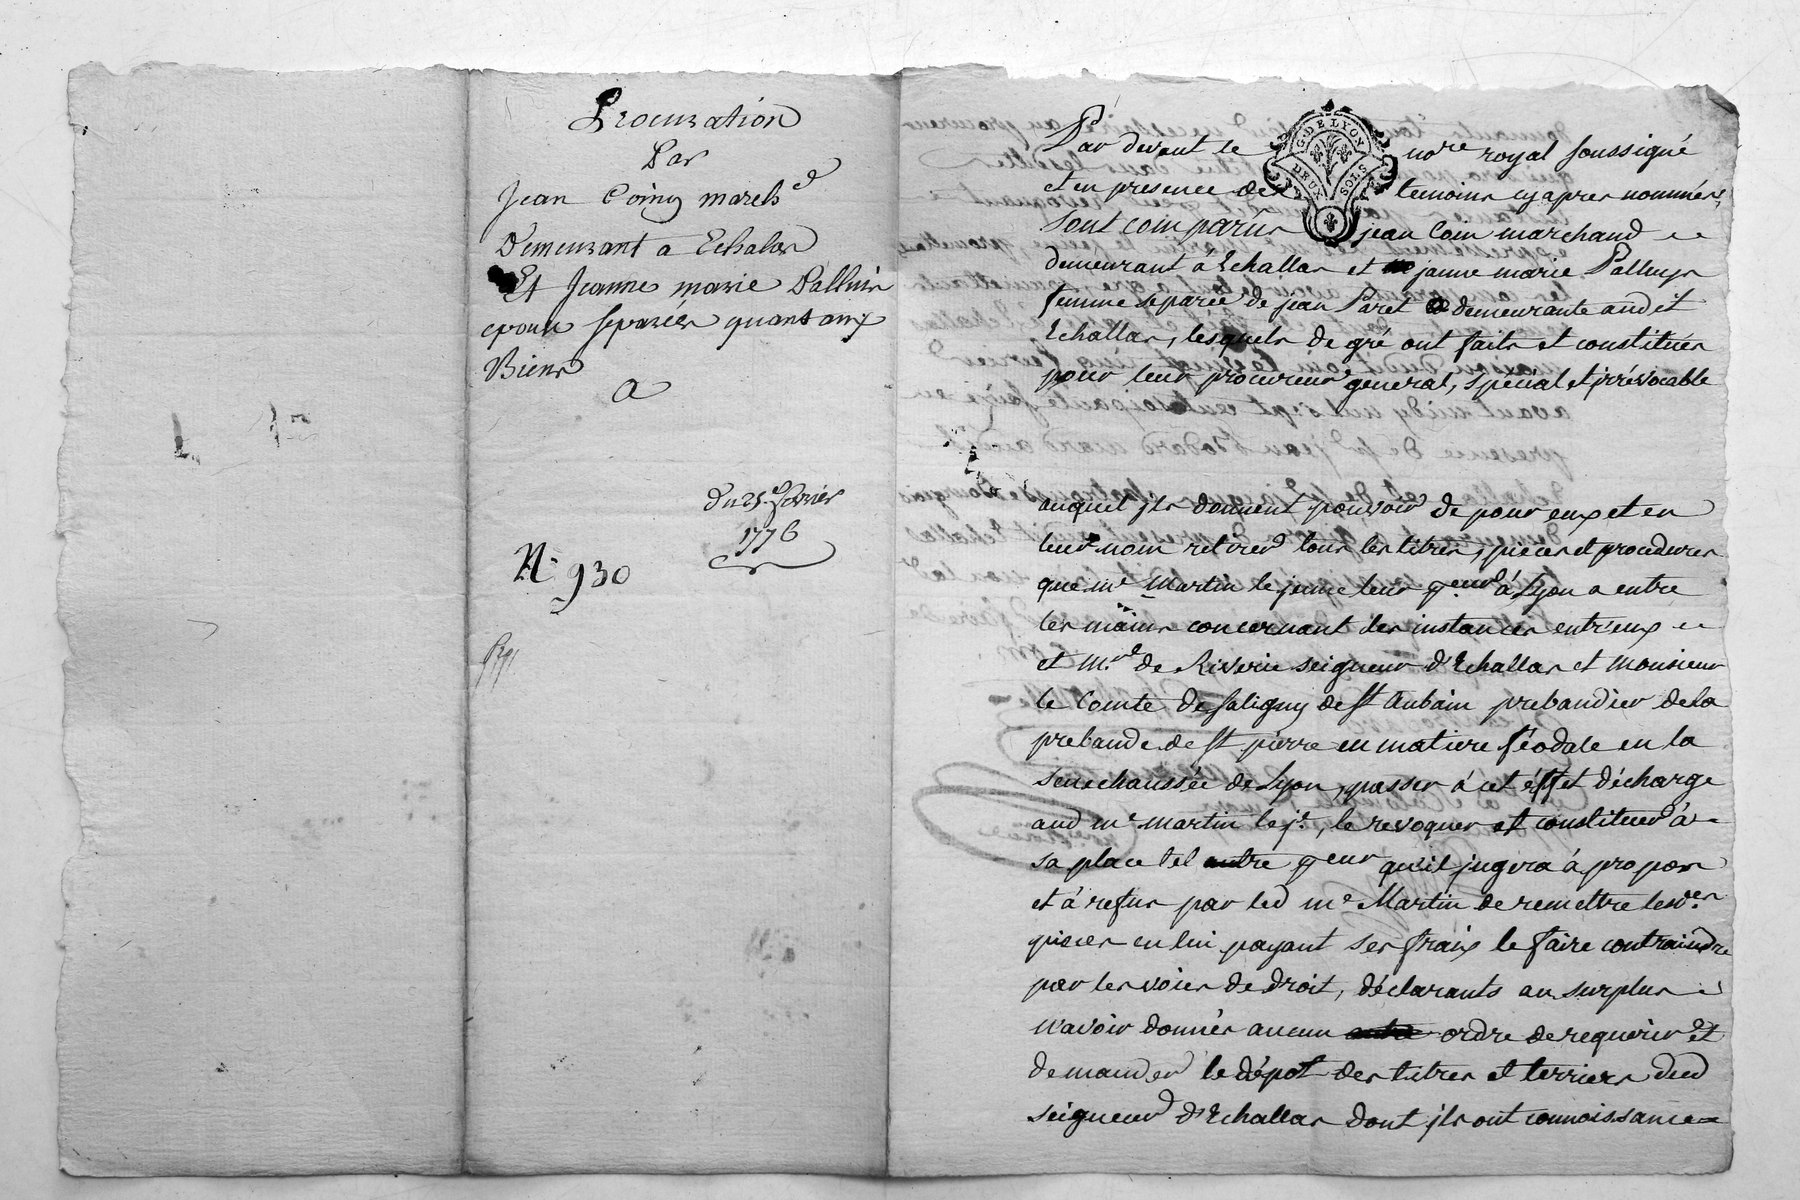 Procuration
Par
Jean Coing march.d
Demeurant a Echalas
Et Jeanne marie Palluis
epoux separes quant aux
Biens
a
Du 25.e fevrier
1776
N.° 930
Par devant le no.re royal soussigné
et en presence des temoins cy apres nommés,
sont comparus jean Coin marchand
demeurant à Echallas et jeanne marie Palluys
femme separée de jean Paret demeurante audit
Echallas, lesquels de gré ont faits et constitués
pour leur procureur general, spécial et irrévocable
G. DE LYON
DEUX SOLS
auquel ils donnent pouvoir de pour eux et en
leur nom retirer tous les titres, pieces et procedures
que m.e Martin le jeune leur p.eur à Lyon a entre
les mains concernant les instances entr'eux
et M.re de Riverie seigneur d'Echallas et monsieur
le Comte de Saligny de St Aubain prebandier de la
prebande de St pierre en matiere féodale en la
senechaussée de Lyon, passer à cet éffet décharge
aud m.e martin le j.e, le revoquer et constituer à
sa place tel autre p.eur qu'il jugera à propos
et à refus par led m.e Martin de remettre lesd.es
pieces en lui payant ses fraix le faire contraindre
par les voies de droit, déclarants au surplus
n'avoir donnés aucun ordre de requerir et
demander le dépot des titres et terriers dud
seigneur d'Echallas dont ils ont connoissance